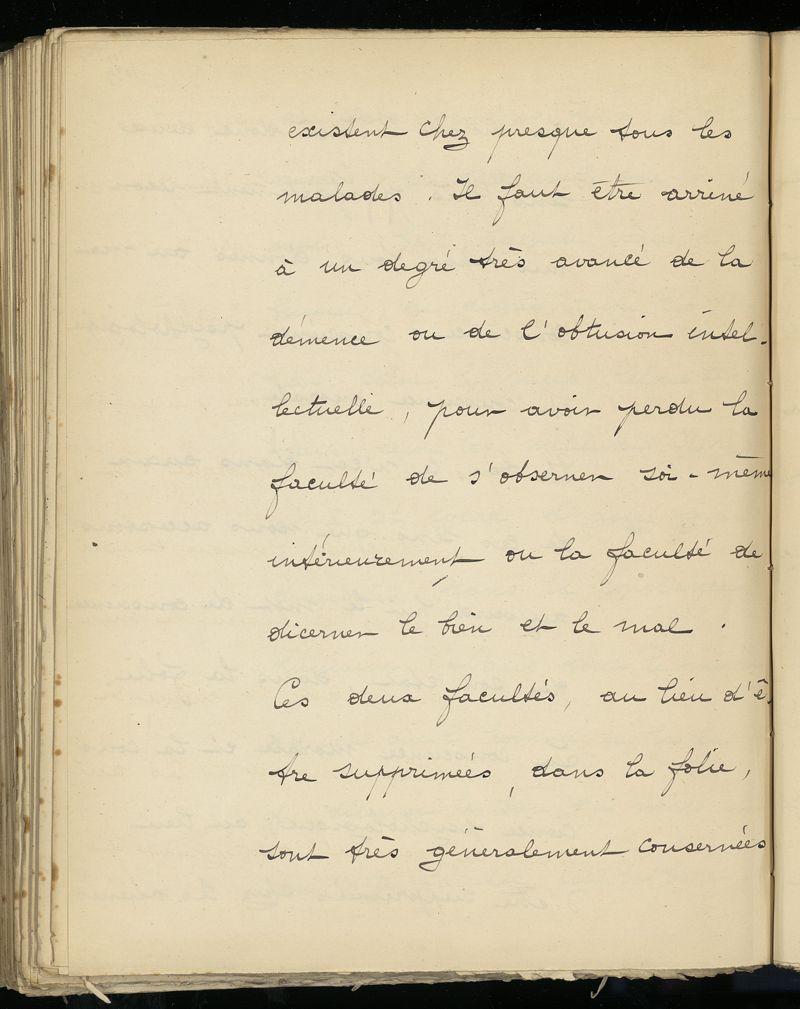 existent chez presque tous les
malades. Il faut être arrivé
à un degré très avancé de la
démence ou de l'obtusion intel-
lectuelle, pour avoir perdu la
faculté de s'observer soi-même
intérieurement ou la faculté de
dicerner le bien et le mal.
Ces deux facultés, au lieu d'ê-
tre supprimées, dans la folie,
sont très généralement conservées